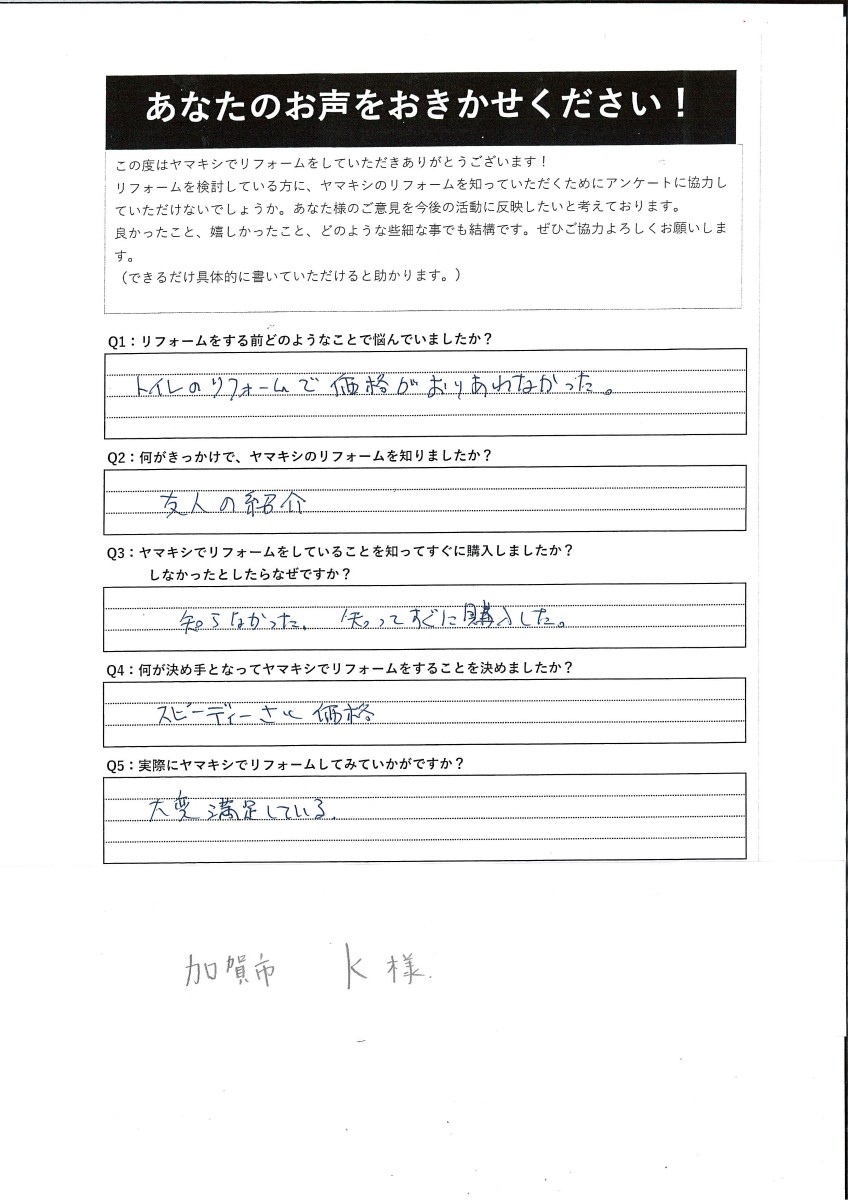 あなたのお声をおきかせください！
この度はヤマキシでリフォームをしていただきありがとうございます！
リフォームを検討している方に、ヤマキシのリフォームを知っていただくためにアンケートに協力し
ていただけないでしょうか。あなた様のご意見を今後の活動に反映したいと考えております。
良かったこと、嬉しかったこと、どのような些細な事でも結構です。ぜひご協力よろしくお願いしま
す。
（できるだけ具体的に書いていただけると助かります。）
Q1：リフォームをする前どのようなことで悩んでいましたか？
トイレのリフォームで価格がおりあわなかった。
Q2：何がきっかけで、ヤマキシのリフォームを知りましたか？
友人の紹介
Q3：ヤマキシでリフォームをしていることを知ってすぐに購入しましたか？
しなかったとしたらなぜですか？
知らなかった。知ってすぐに購入した。
Q4：何が決め手となってヤマキシでリフォームをすることを決めましたか？
スピーディーさと価格
Q5：実際にヤマキシでリフォームしてみていかがですか？
大変満足している.
加賀市 K様.